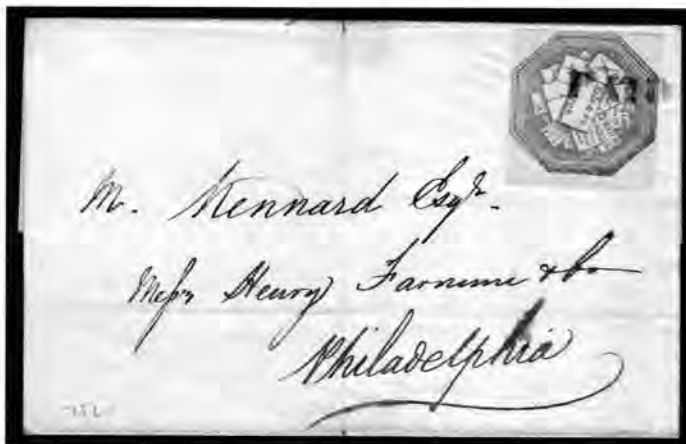 M. Kennard Esqr.
Messrs Henry Farnum & Co
Philadelphia